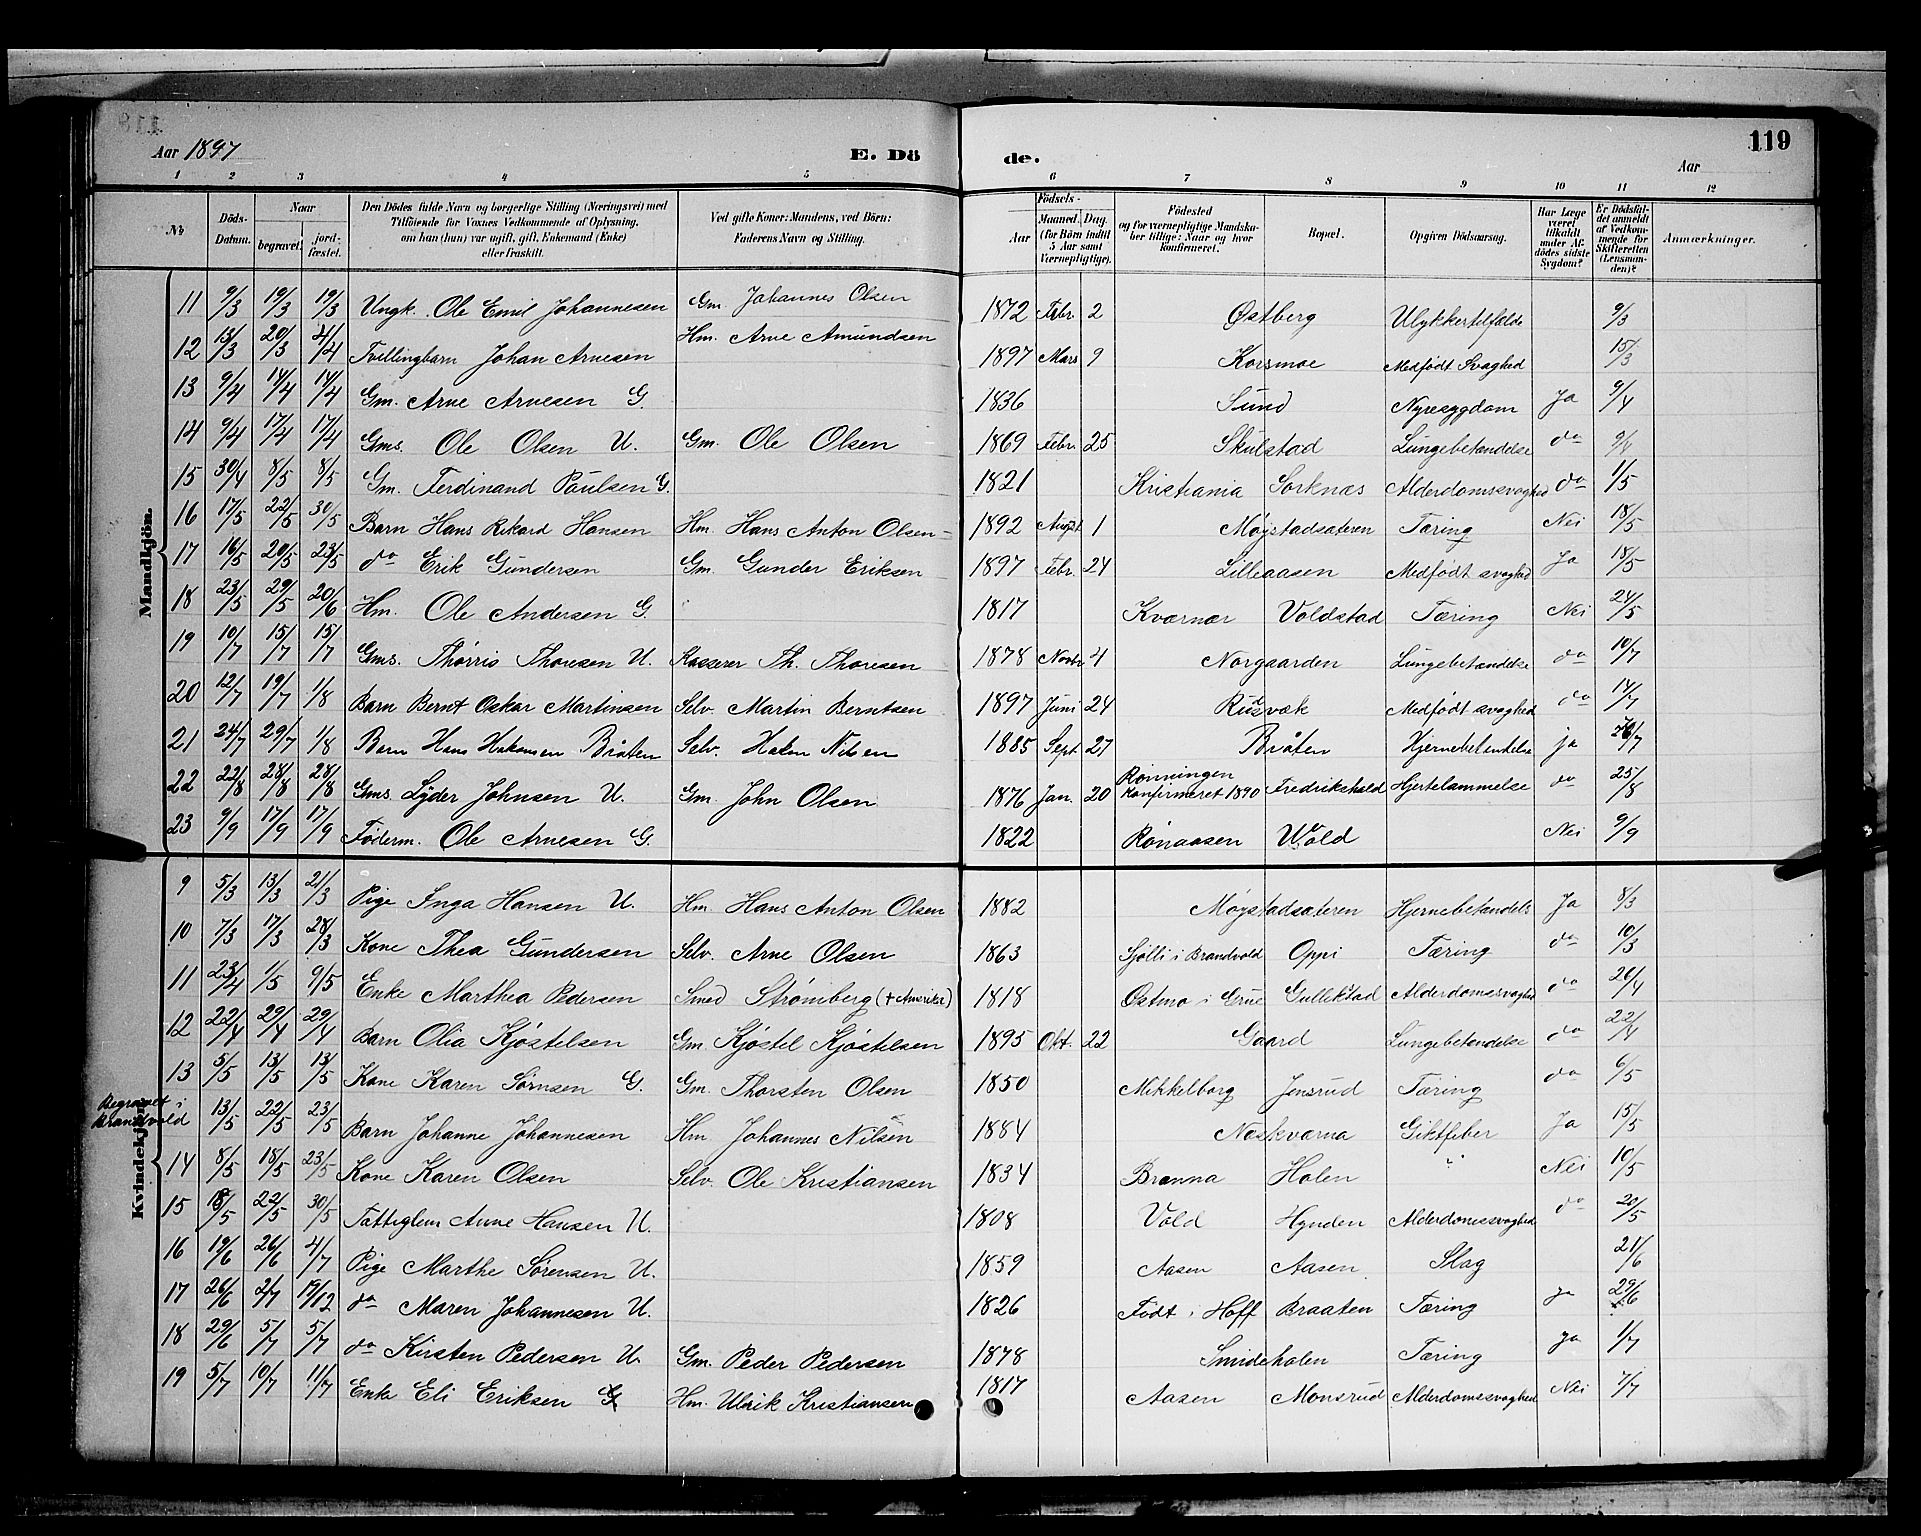 119
Aar 1897 E. Döde. Aar
1 2 3 4 5 6 7 8 9 10 11 12
No Döds-Datum. Naar begravet. jordfæstet. Den Dödes fulde Navn og borgerlige Stilling (Næringsvei) med Tilföiende for Voxnes Vedkommende af Oplysning, om han (hun) var ugift, gift, Enkemand (Enke) eller fraskilt. Ved gifte Koner: Mandens, ved Börn: Faderens Navn og Stilling. Födsels- Aar Maaned. Dag. (for Börn indtil 5 Aar samt Værnepligtige). Födested og for værnepligtige Mandskaber tillige: Naar og hvor Konfirmeret. Bopæl. Opgiven Dödsaarsag. Har Læge været tilkaldt under Afdödes sidste Sygdom? Er Dödsfaldet anmeldt af Vedkommende for Skifteretten (Lensmanden)? Anmærkninger.
Mandkjön.
11 9/3 19/3 19/3 Ungk. Ole Emil Johannesen Gm. Johannes Olsen 1872 Febr. 2 Østberg Ulykkertilfælde 9/3
12 13/3 20/3 4/4 Tvillingbarn Johan Arnesen Hm. Arne Amundsen 1897 Mars 9 Korsmoe Medfødt Svaghed 15/3
13 9/4 14/4 14/4 Gm. Arne Arnesen G. 1836 Sund Nyresygdom Ja 9/4
14 9/4 17/4 17/4 Gms. Ole Olsen U. Gm. Ole Olsen 1869 Febr. 25 Skulstad Lungebetændelse do 9/4
15 30/4 8/5 8/5 Gm. Ferdinand Paulsen G. 1821 Kristiania Sorknæs Alderdomssvaghed do 1/5
16 17/5 22/5 30/5 Barn Hans Rikard Hansen Hm. Hans Anton Olsen 1892 Augst. 1 Møystadsæteren Tæring Nei 18/5
17 16/5 20/5 23/5 do Erik Gundersen Gm. Gunder Eriksen 1897 Febr. 24 Lilleaasen Medfødt svaghed Ja 18/5
18 23/5 29/5 20/6 Hm. Ole Andersen G. 1817 Kværnær Voldstad Tæring Nei 24/5
19 10/7 15/7 15/7 Gms. Thørris Thoresen U. Kasserer Th. Thoresen 1878 Novbr 4 Norgaarden Lungebetændelse do 10/7
20 12/7 19/7 1/8 Barn Bernt Oskar Martinsen Selv. Martin Berntsen 1897 Juni 24 Rudsvæk Medfødt svaghed do 14/7
21 24/7 29/7 1/8 Barn Hans Hakonsen Bråten Selv. Hakon Nilsen 1885 Sept. 27 Bråten Hjernebetændelse ja /7
22 22/8 28/8 28/8 Gms. Lyder Johnsen U. Gm. John Olsen 1876 Jan. 20 Rønningen Konfirmeret 1890 Fredrikshald Hjertelammelse do 25/8
23 9/9 17/9 17/9 Føderm. Ole Arnesen G. 1822 Rønaasen Wold Nei 9/9
Kvindekjön.
9 5/3 13/3 21/3 Pige Inga Hansen U. Hm. Hans Anton Olsen 1882 Møystadsæteren Hjernebetændels Ja 8/3
10 7/3 17/3 28/3 Kone Thea Gundersen Selv. Arne Olsen 1863 Sjølli i Brandvold Oppi Tæring do 10/3
11 23/4 1/5 9/5 Enke Marthea Pedersen Smed Strømberg (+ Amerika) 1818 Østmo i Grue Gullikstad Alderdomssvaghed do 20/4
12 22/4 29/4 29/4 Barn Olia Kjøstelsen Gm. Kjøstel Kjøstelsen 1895 Okt. 22 Gaard Lungebetændelse do 22/4
13 5/5 13/5 13/5 Kone Karen Sørnsen G. Gm. Thorsten Olsen 1850 Mikkelborg Jensrud Tæring do 6/5
Begravet i Brandvold 13/5 22/5 23/5 Barn Johanne Johannesen Hm Johannes Nilsen 1884 Næskværna Giktfeber Ja 15/5
14 8/5 18/5 23/5 Kone Karen Olsen Selv. Ole Kristiansen 1834 Branna Holen " Nei 10/5
15 18/5 22/5 30/5 Fattiglem Anne Hansen U. 1808 Vold Hynden Alderdomssvaghed do 20/5
16 19/6 26/6 4/7 Pige Marthe Sørensen U. 1859 Aasen Aasen Slag 21/6
17 26/6 2/7 19/12 do Maren Johannesen U. 1826 Født i Hoff Braaten Tæring ja 29/6
18 29/6 5/7 5/7 do Kirsten Pedersen U. Gm. Peder Pedersen 1878 Smideholen Tæring ja 1/7
19 5/7 10/7 11/7 Enke Eli Eriksen G Hm. Ulrik Kristiansen 1817 Aasen Monsrud Alderdomssvaghed Nei 7/7